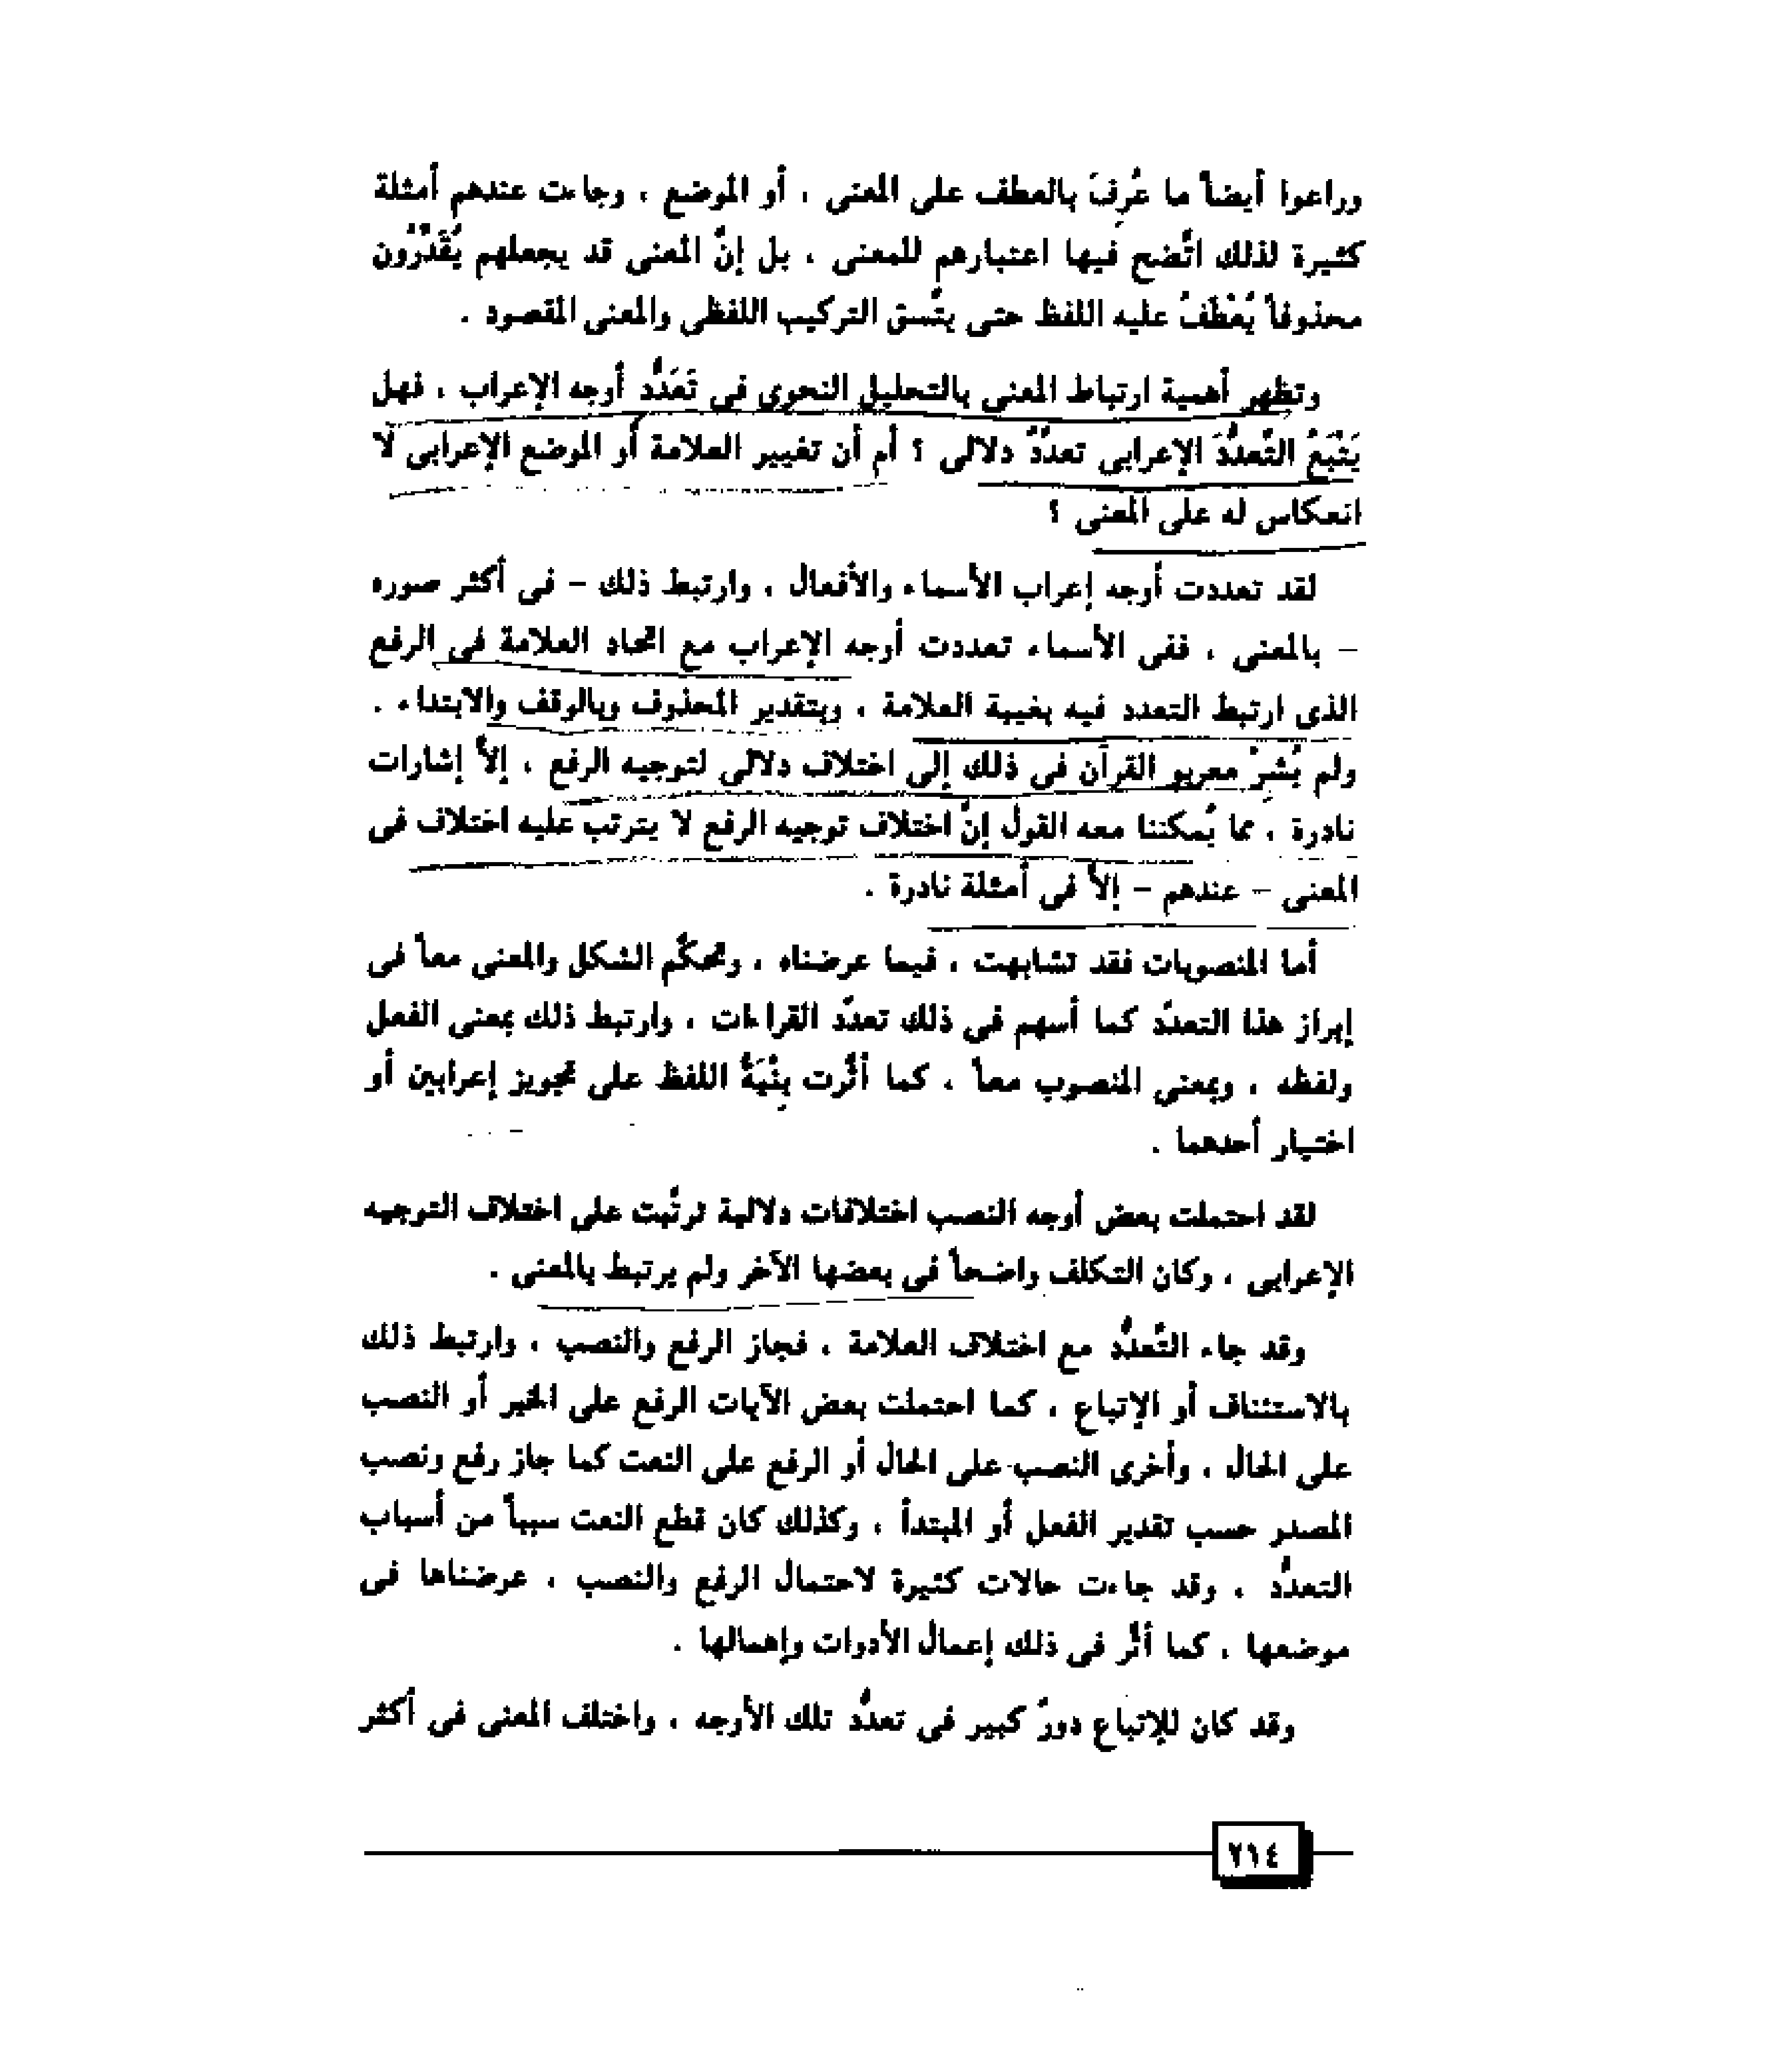 وراعوا أيضاً ما عُرِفَ بالعطف على المعنى ، أو الموضع ، وجاءت عندهم أمثلة
كثيرة لذلك اتَّضح فيها اعتبارهم للمعنى ، بل إنَّ المعنى قد يجعلهم يُقَدِّرُون
محذوفاً يُعْطَفُ عليه اللفظ حتى يتَّسق التركيب اللفظى والمعنى المقصود .
وتظهر أهمية ارتباط المعنى بالتحليل النحوى فى تَعَدُّد أوجه الإعراب ، فهل
يَتْبَعُ التَّعدُّدَ الإعرابى تعدُّدٌ دلالى ؟ أم أن تغيير العلامة أو الموضع الإعرابى لا
انعكاس له على المعنى ؟
لقد تعددت أوجه إعراب الأسماء والأفعال ، وارتبط ذلك – فى أكثر صوره
– بالمعنى ، ففى الأسماء تعددت أوجه الإعراب مع اتحاد العلامة فى الرفع
الذى ارتبط التعدد فيه بغيبة العلامة ، وبتقدير المحذوف وبالوقف والابتداء .
ولم يُشِرْ معربو القرآن فى ذلك إلى اختلاف دلالى لتوجيه الرفع ، إلاَّ إشارات
نادرة ، مما يُمكننا معه القول إنَّ اختلاف توجيه الرفع لا يترتب عليه اختلاف فى
المعنى – عندهم – إلاَّ فى أمثلة نادرة .
أما المنصوبات فقد تشابهت ، فيما عرضناه ، وتحكَّم الشكل والمعنى معاً فى
إبراز هذا التعدُّد كما أسهم فى ذلك تعدُّد القراءات ، وارتبط ذلك بمعنى الفعل
ولفظه ، وبمعنى المنصوب معاً ، كما أثَّرت بِنْيَةُ اللفظ على تجويز إعرابين أو
اختيار أحدهما .
لقد احتملت بعض أوجه النصب اختلافات دلالية ترتَّبت على اختلاف التوجيه
الإعرابى ، وكان التكلف واضحاً فى بعضها الآخر ولم يرتبط بالمعنى .
وقد جاء التَّعدُّد مع اختلاف العلامة ، فجاز الرفع والنصب ، وارتبط ذلك
بالاستئناف أو الإتباع ، كما احتملت بعض الآيات الرفع على الخبر أو النصب
على الحال ، وأخرى النصب على الحال أو الرفع على النعت كما جاز رفع ونصب
المصدر حسب تقدير الفعل أو المبتدأ ، وكذلك كان قطع النعت سبباً من أسباب
التعدُّد ، وقد جاءت حالات كثيرة لاحتمال الرفع والنصب ، عرضناها فى
موضعها ، كما أثَّر فى ذلك إعمال الأدوات وإهمالها .
وقد كان للإتباع دورٌ كبير فى تعدُّد تلك الأوجه ، واختلف المعنى فى أكثر
٢١٤